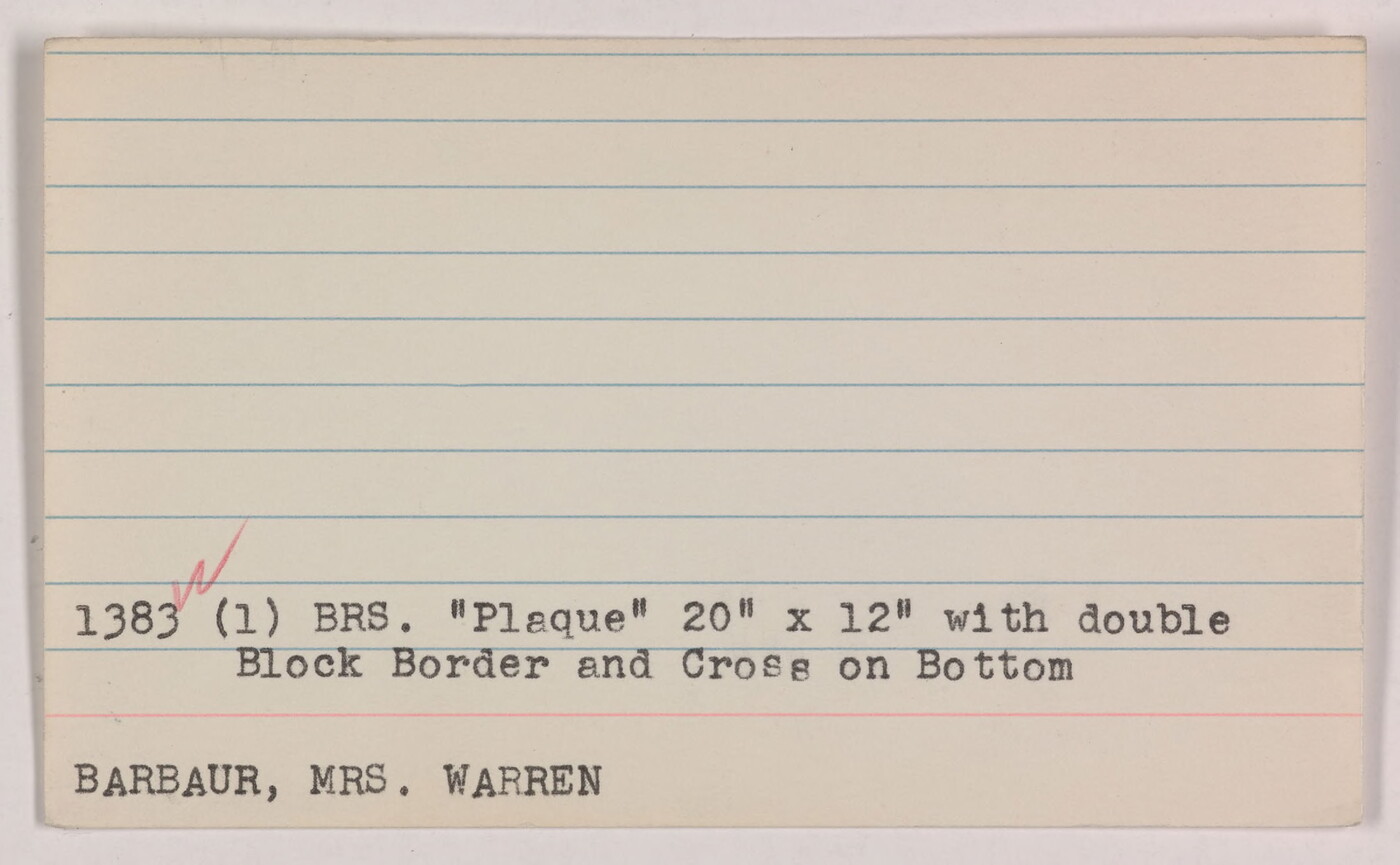 1383 (1) BRS. "Plaque" 20" x 12" with double
Block Border and Cross on Bottom
BARBAUR, MRS. WARREN